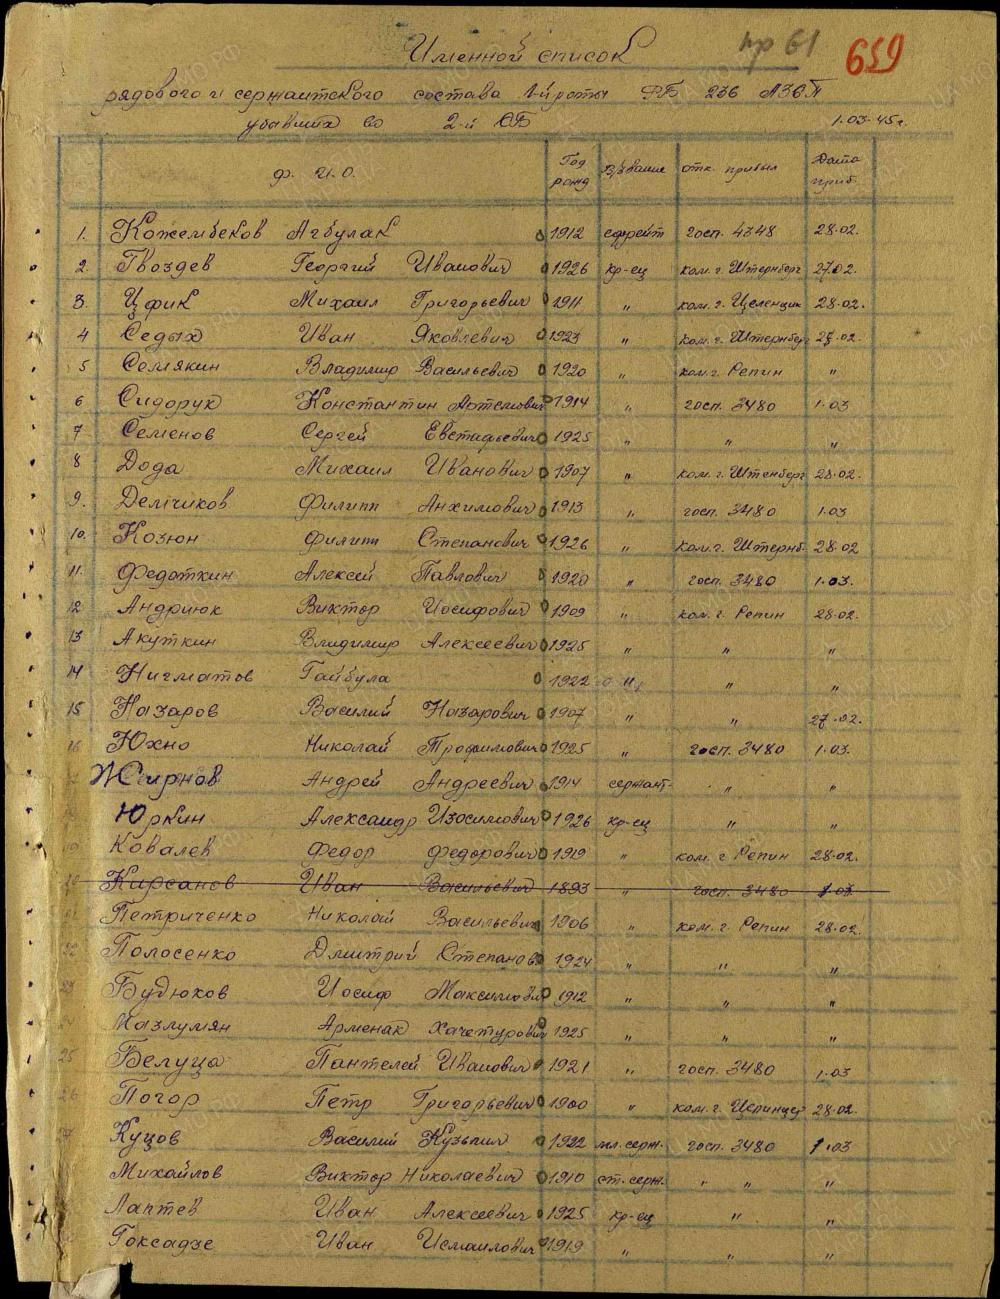 Именной список
пр 61
659
рядового и сержантского состава 1-й роты ФБ 236 АЗСП
убавших во 2-й СБ 1.03.45г.
Ф. И. О. Год рожд Звание отк. прибыл Дата приб.
1. Кожембеков Агбулак 1912 ефрейт госп. 4348 28.02.
2. Гвоздев Георгий Иванович 1926 кр-ец ком. г. Штернберг 27.02.
3. Цфик Михаил Григорьевич 1911 " ком. г. Целенциг 28.02.
4 Седых Иван Яковлевич 1923 " ком. г. Штернберг 27.02.
5 Семякин Владимир Васильевич 1920 " ком. г. Репин "
6 Сидорук Константин Артемович 1914 " госп. 3480 1.03
7 Семенов Сергей Евстафьевич 1925 " " "
8 Дода Михаил Иванович 1907 " ком. г. Штенберг 28.02.
9. Демчиков Филипп Анхимович 1913 " госп. 3480 1.03
10. Козюн Филипп Степанович 1926 " ком. г. Штернб. 28.02
11. Федоткин Алексей Павлович 1920 " госп. 3480 1.03.
12 Андриюк Виктор Иосифович 1909 " ком. г. Репин 28.02.
13 Акуткин Владимир Алексеевич 1925 " " "
14 Нигматов Гайбула 1922 " " "
15 Назаров Василий Назарович 1907 " " 27.02.
16 Юхно Николай Трофимович 1925 " госп. 3480 1.03.
Жирнов Андрей Андреевич 1914 сержант " "
Юркин Александр Изосимович 1926 кр-ец " "
19 Ковалев Федор Федорович 1919 " ком. г. Репин 28.02.
20 Кирсанов Иван Васильевич 1893 " госп. 3480 1.03
21 Петриченко Николай Васильевич 1906 " ком. г. Репин 28.02.
22 Полосенко Дмитрий Степанов 1924 " " "
23 Будюков Иосиф Максимович 1912 " " "
24 Мазлумян Арменак Хачетурович 1925 " " "
25 Белуца Пантелей Иванович 1921 " госп. 3480 1.03
26 Погор Петр Григорьевич 1900 " ком. г. 28.02.
27 Куцов Василий Кузьмич 1922 мл. серж. госп. 3480 1.03
Михайлов Виктор Николаевич 1910 ст. серж. " " "
Лаптев Иван Алексеевич 1925 кр-ец " "
Гоксадзе Иван Исмаилович 1919 " " "